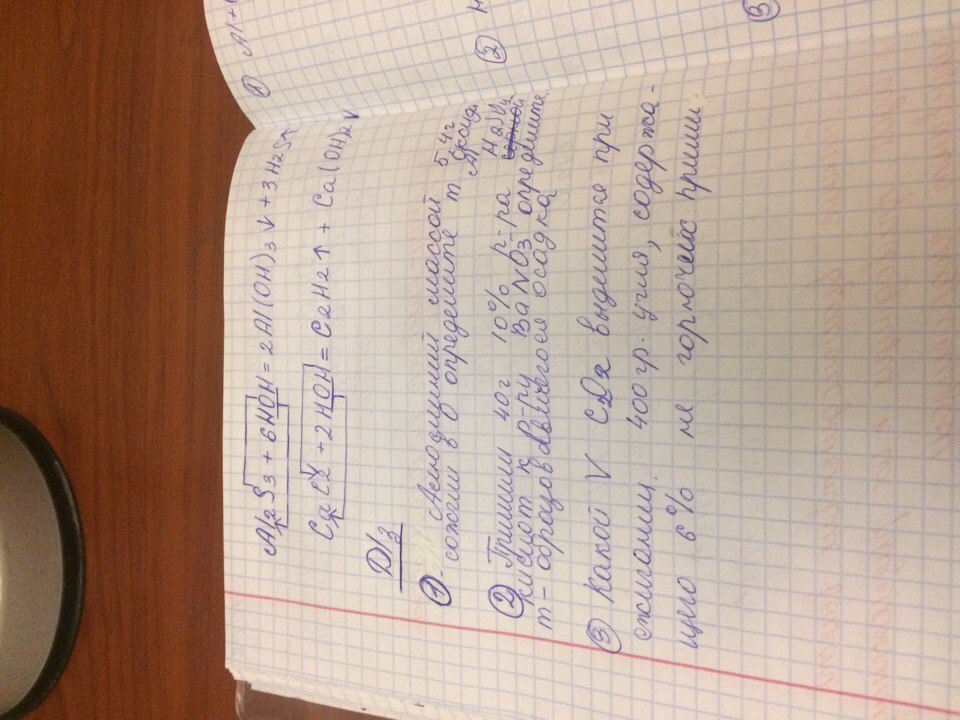 Al2S3 + 6HOH = 2Al(OH)3↓ + 3H2S↑
CaC2 + 2HOH = C2H2↑ + Ca(OH)2↓
D/з
① Алюминий массой 5,4г
сожгли определите m
② Прилили 40г 10% р-ра H2SO4
кислот к р-ру BaNO3 определите
m - образовавшегося осадка
③ Какой V CO2 выделится при
сжигании 400 гр. угля, содержа-
щего 6% не горючих примес
① Al +
②
③